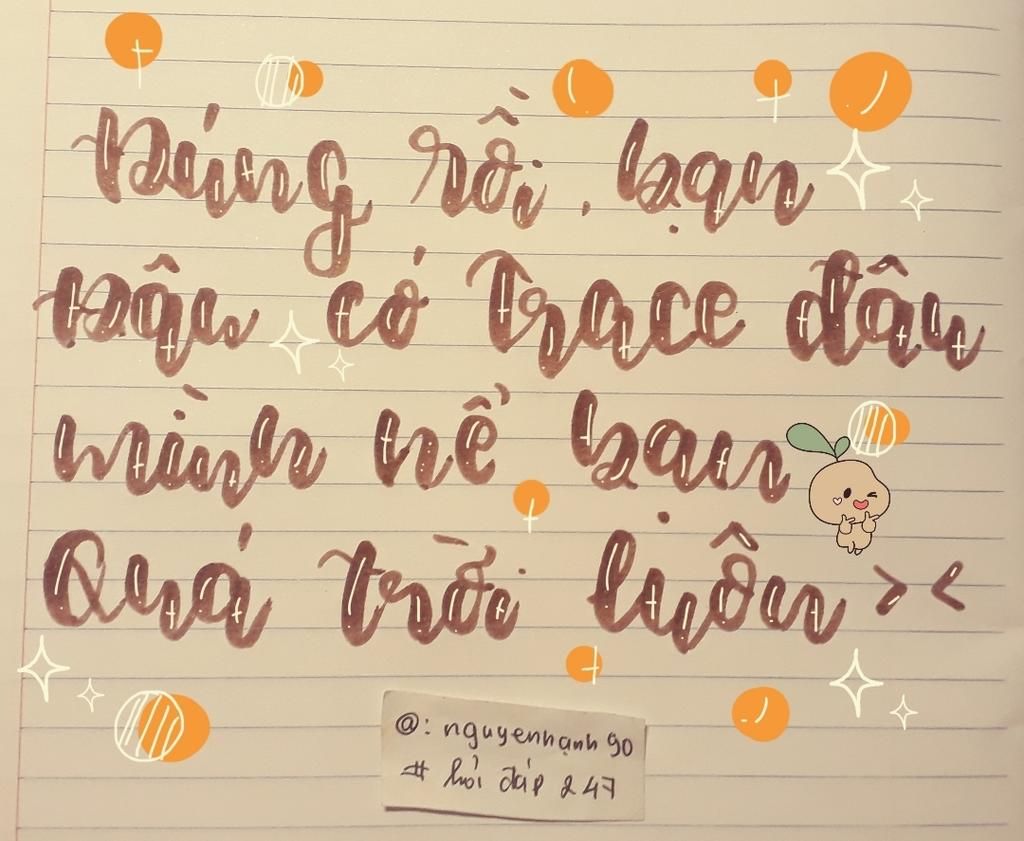 Đúng rồi, bạn
Đâu có Trace đâu
mình nể bạn
Quá trời luôn ><
@: nguyenhạnh90
# hỏi đáp 247